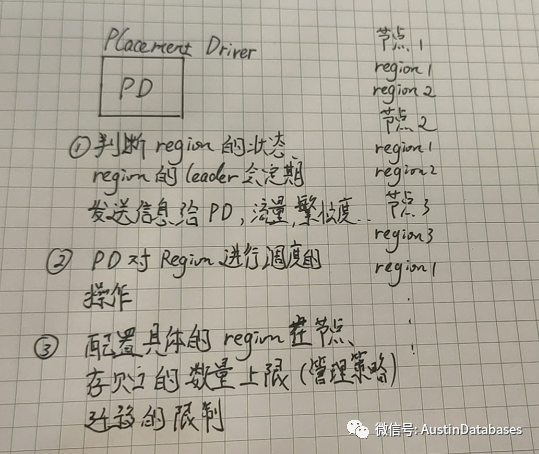 Placement Driver
PD
① 判断 region 的状态
region 的 leader 会定期
发送信息给 PD, 流量, 繁忙度..
② PD 对 Region 进行调度的
操作
③ 配置具体的 region 在节点
存贮的数量上限 (管理策略)
迁移的限制
节点 1
region 1
region 2
节点 2
region 1
region 2
节点 3
region 3
region 1
微信号: AustinDatabases